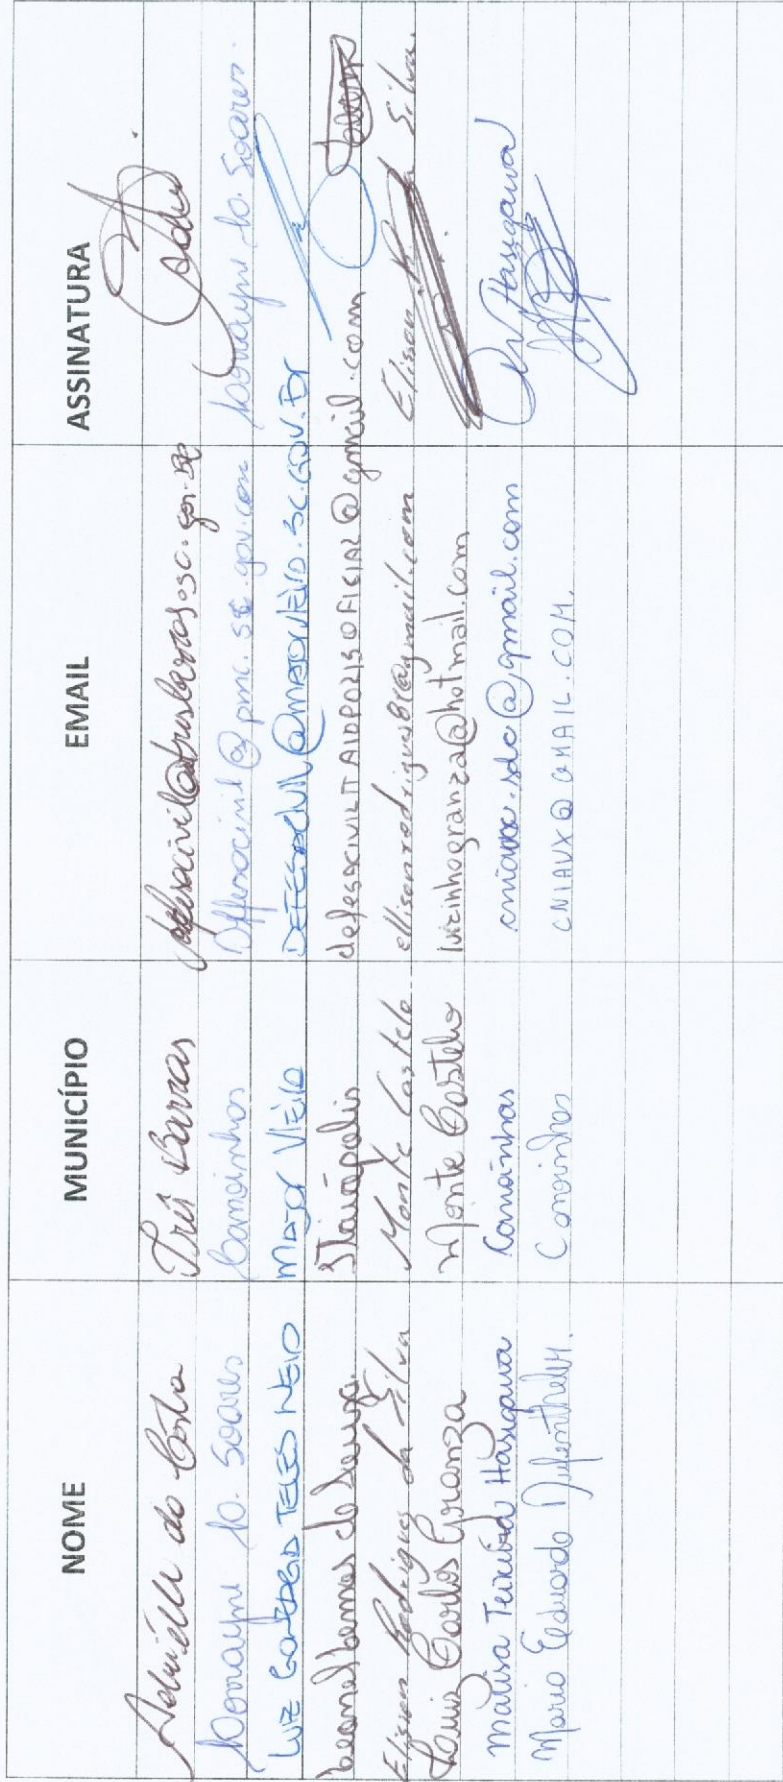 NOME MUNICÍPIO EMAIL ASSINATURA
Adrielle da Costa Três Barras defesacivil@tresbarras.sc.gov.br
Soares Canoinhas @pmc.sc.gov.com Soares
LUIZ TELES NETO MAJOR VIEIRA DEFESACIVIL@MAJORVIEIRA.SC.GOV.BR
Leonel Lemos de Souza Itaiópolis defesacivilITAIOPOLISOFICIAL@gmail.com
Elison Rodrigues da Silva Monte Castelo ellisonrodrigues81@gmail.com Elison R. da Silva
Luiz Carlos Granza Monte Castelo luizinhogranza@hotmail.com
Marisa Teixeira Hasegawa Canoinhas cniaux.sdc@gmail.com Hasegawa
Mario Eduardo Canoinhas CNIAUX@GMAIL.COM.